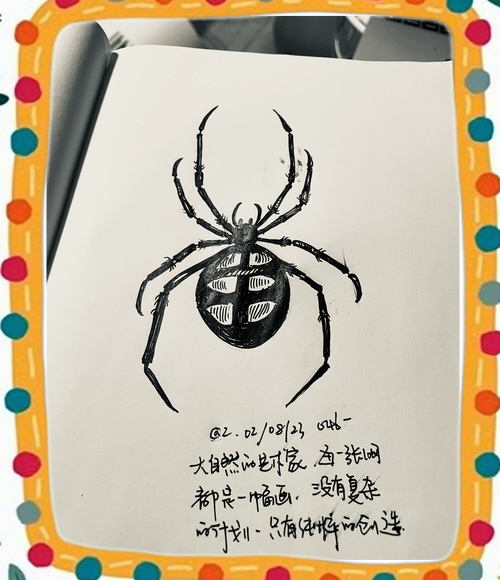 @Z. 02/08/23
大自然的艺术家,每一张网
都是一幅画,没有复杂
的计划、只有纯粹的创造.